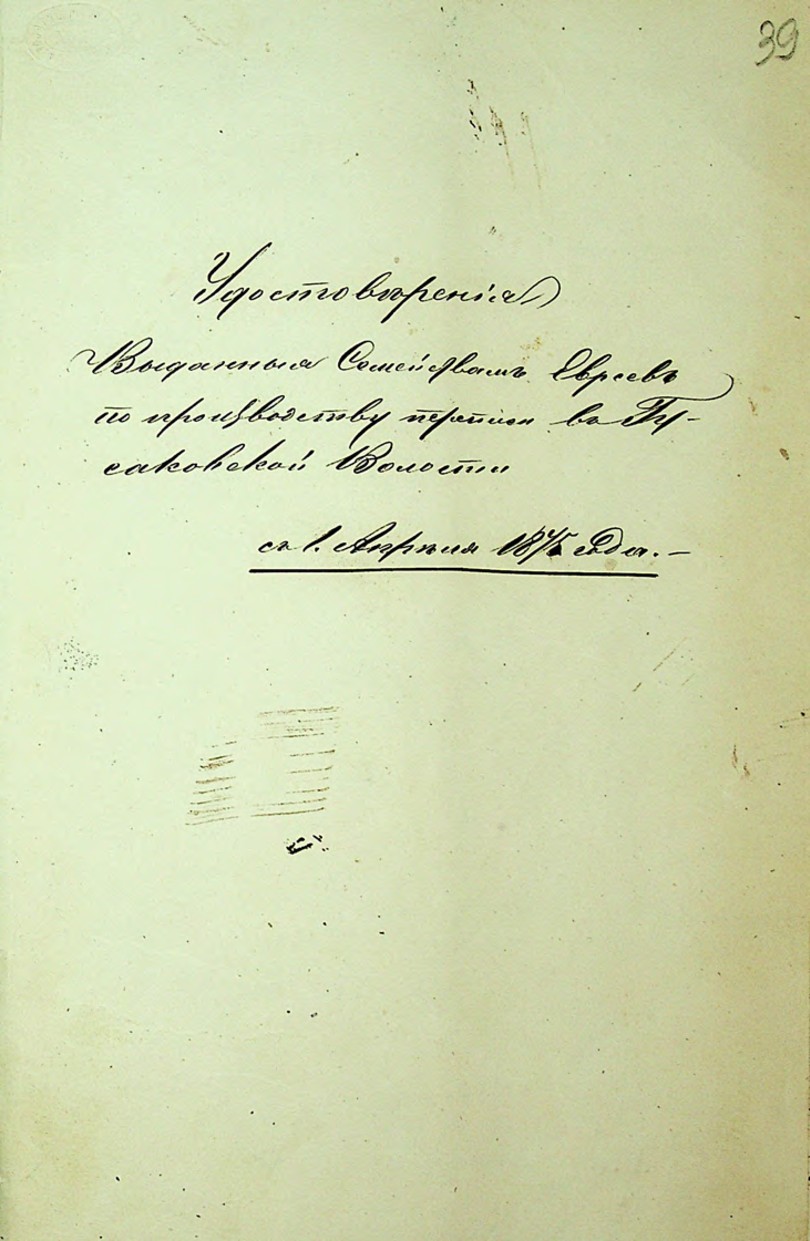 39
Удостовѣренія
Выданныя Семействамъ Евреевъ
по производству переписи въ Гу-
саковской Волости
съ 1. Апрѣля года. —